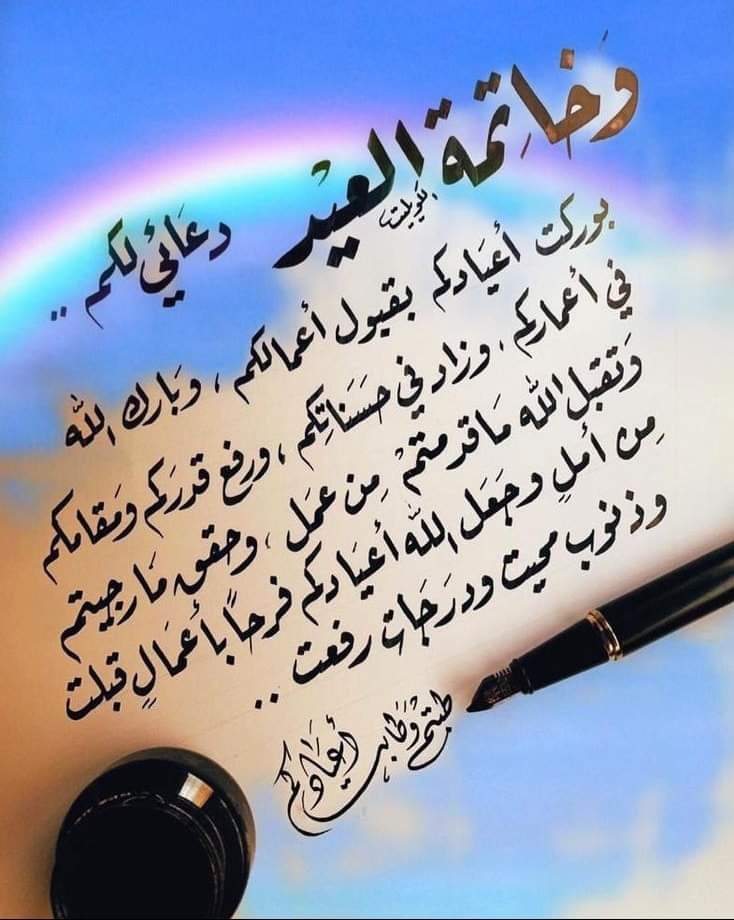 وَخاتِمة العيْد دعَائي لكم ..
الكويت
بوركت أعيَادكم بقبول أعمالكم ، وَبارك الله
في أعماركم ، وزاد في حسَنَاتِكم ، ورفع قدرَكم ومَقامكم
وَتقبل الله مَاقدمتمْ مِن عمَل ، وحقق مَا رجيتم
مِن أملٍ وجَعَل الله أعيَادكم فرحاً بأعمَالٍ قبلت
وذنوب محيت ودرَجَات رفعت ..
طبتم وَطَابت أعيَادكم